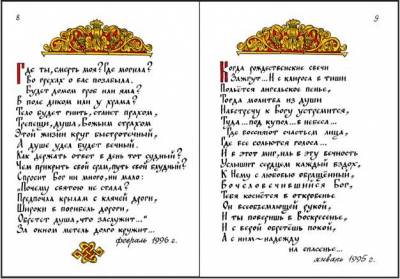 8
Где ты, смерть моя? Где могила?
Во грехах о вас позабыла.
Будет домом гроб или яма?
В поле диком или у храма?
Тело будет гнить, станет прахом,
Трепещи, душа, Божьим страхом
Этой жизни круг быстротечный,
А душе удел будет вечный.
Как держать ответ в день тот судный?
Чем прикрыть свой срам, путь свой блудный?
Спросит Бог ни много, ни мало:
"Почему святою не стала?
Предпочла крылам с клячей дроги,
Широки в погибель дороги,
Обретет душа, что заслужит..."
За окном метель долго кружит...
февраль 1996 г.
9
Когда рождественские свечи
Зажгут... И с клироса в тиши
Польётся ангельское пенье,
Тогда молитва из души
Навстречу к Богу устремится,
Туда... под купол... в небеса...
Где воспоют счастьем лица,
Где все сольются голоса...
И в этот миг, иль в эту вечность
Услышит сердцем каждый вздох,
К Нему с любовью обращённый,
Бочеловечившийся Бог,
Тебя коснётся в откровенье
Он всеобъемлющей рукой,
И ты поверишь в Воскресенье,
И с верой обретёшь покой,
А с ним - надежду
на спасенье...
январь 1995 г.